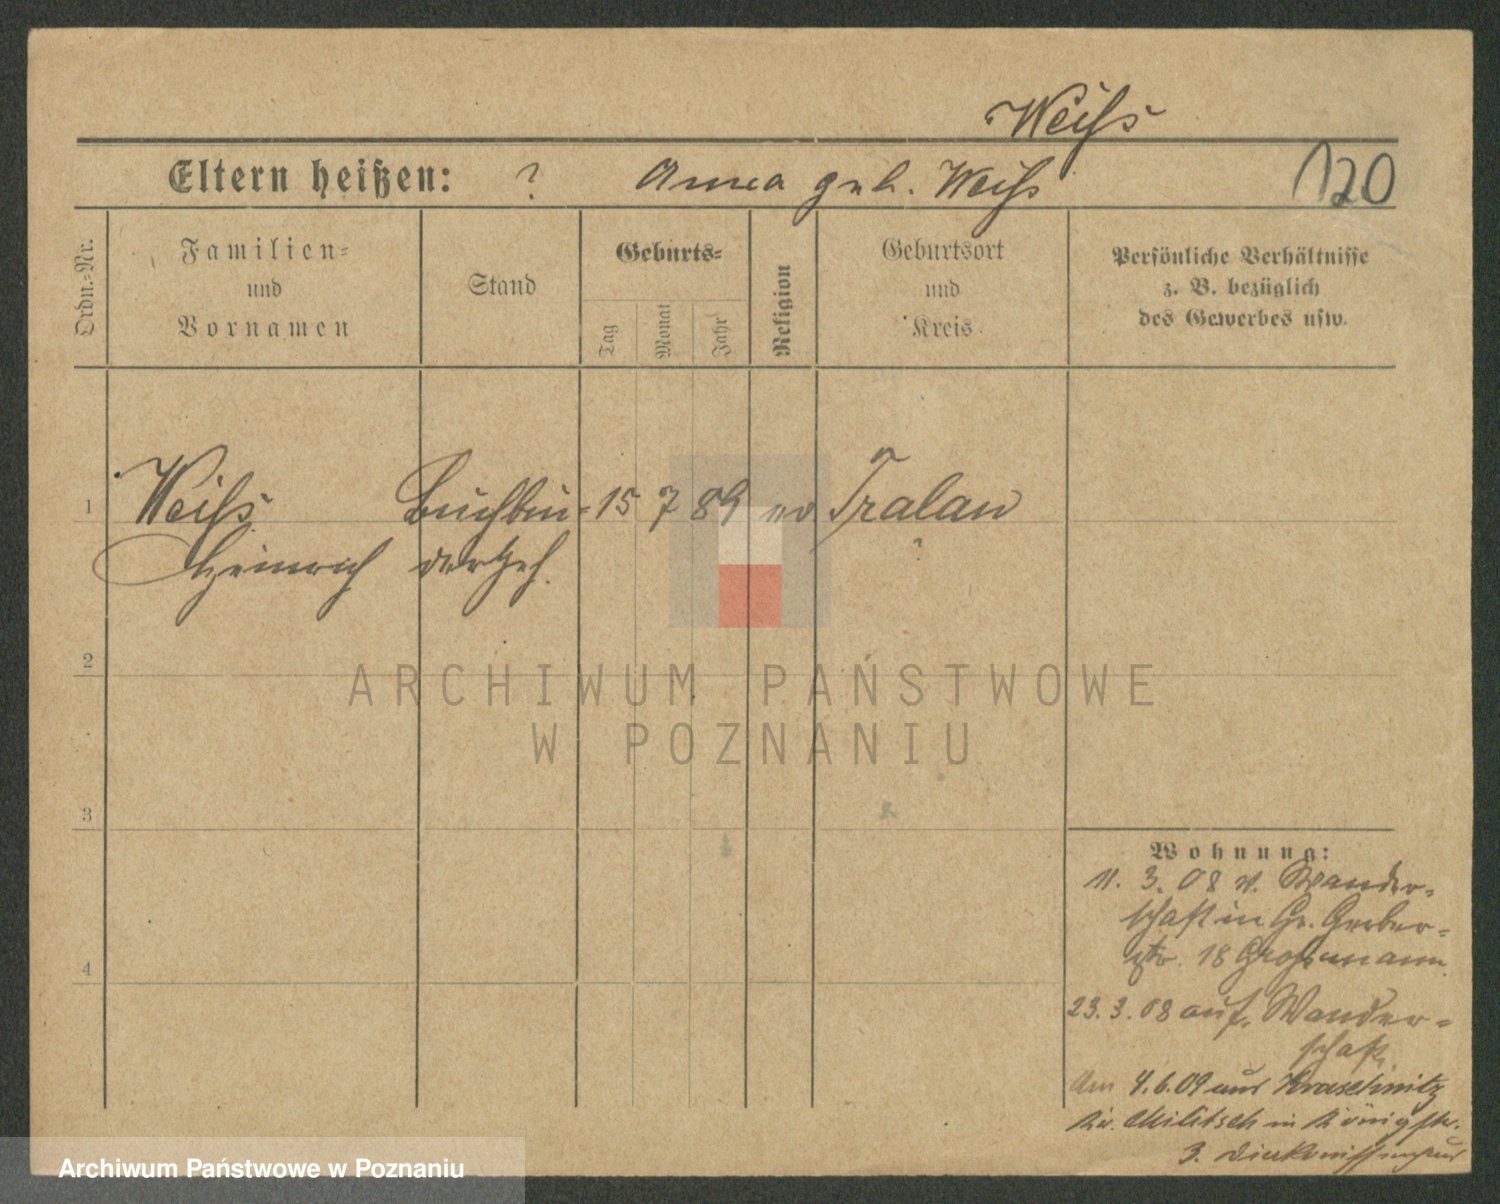 Weiß
Eltern heißen: ? Anna geb. Weiß 120
Ordn.=Nr.
Familien=
und
Vornamen
Stand
Geburts=
Tag
Monat
Jahr
Religion
Geburtsort
und
Kreis.
Persönliche Verhältnisse
z. B. bezüglich
des Gewerbes usw.
1 Weiß Buchbin- 15 7 89 ev Tralau
Heinrich derGeh. ?
2
ARCHIWUM PAŃSTWOWE
W POZNANIU
3
4
Wohnung:
11. 3. 08 v. Wander=
schaft in Gr. Gerber=
str. 18 Großmann
23. 3. 08 auf Wander=
schaft
Am 4.6.09 aus Kraschnitz
Kr. Militsch in Königstr.
3.
Archiwum Państwowe w Poznaniu